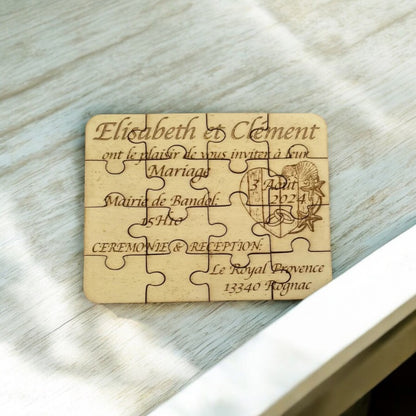 Elisabeth et Clément
ont le plaisir de vous inviter à leur
Mariage
3 Août
Mairie de Bandol:
2024
15H10
CEREMONIE & RECEPTION:
Le Royal Provence
13340 Rognac